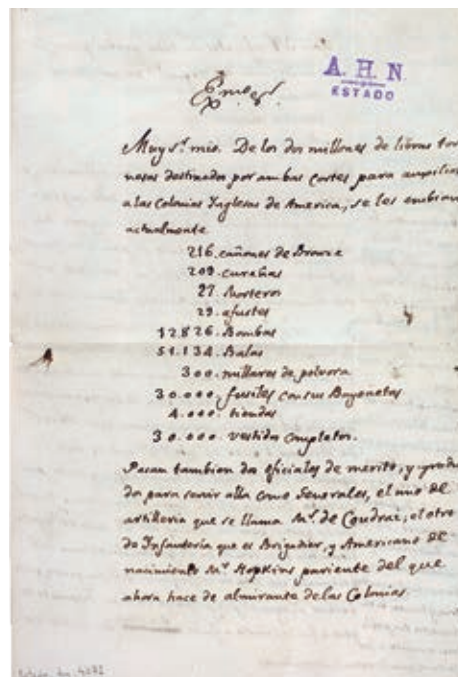 A. H. N.
ESTADO
Exmo. Sr.
Muy Sr. mio. De los dos millones de libras tor-
nesas destinados por ambas cortes para auxilios
a las Colonias Ynglesas de America, se les embian
actualmente
216. cañones de Bronze
209. cureñas
27. Morteros
29. afustes
12.826. Bombas
51.134. Balas
300. millares de polvora
30.000. fusiles con sus Bayonetas
4.000. tiendas
30.000. vestidos completos.
Pasan tambien dos oficiales de merito, y gradua
dos para servir alla como Generales, el uno de
artilleria que se llama Mr. de Coudrai, el otro
de Ynfanteria que es Brigadier, y Americano de
nacimiento Mr. Hopkins pariente del que
ahora hace de almirante de las Colonias.